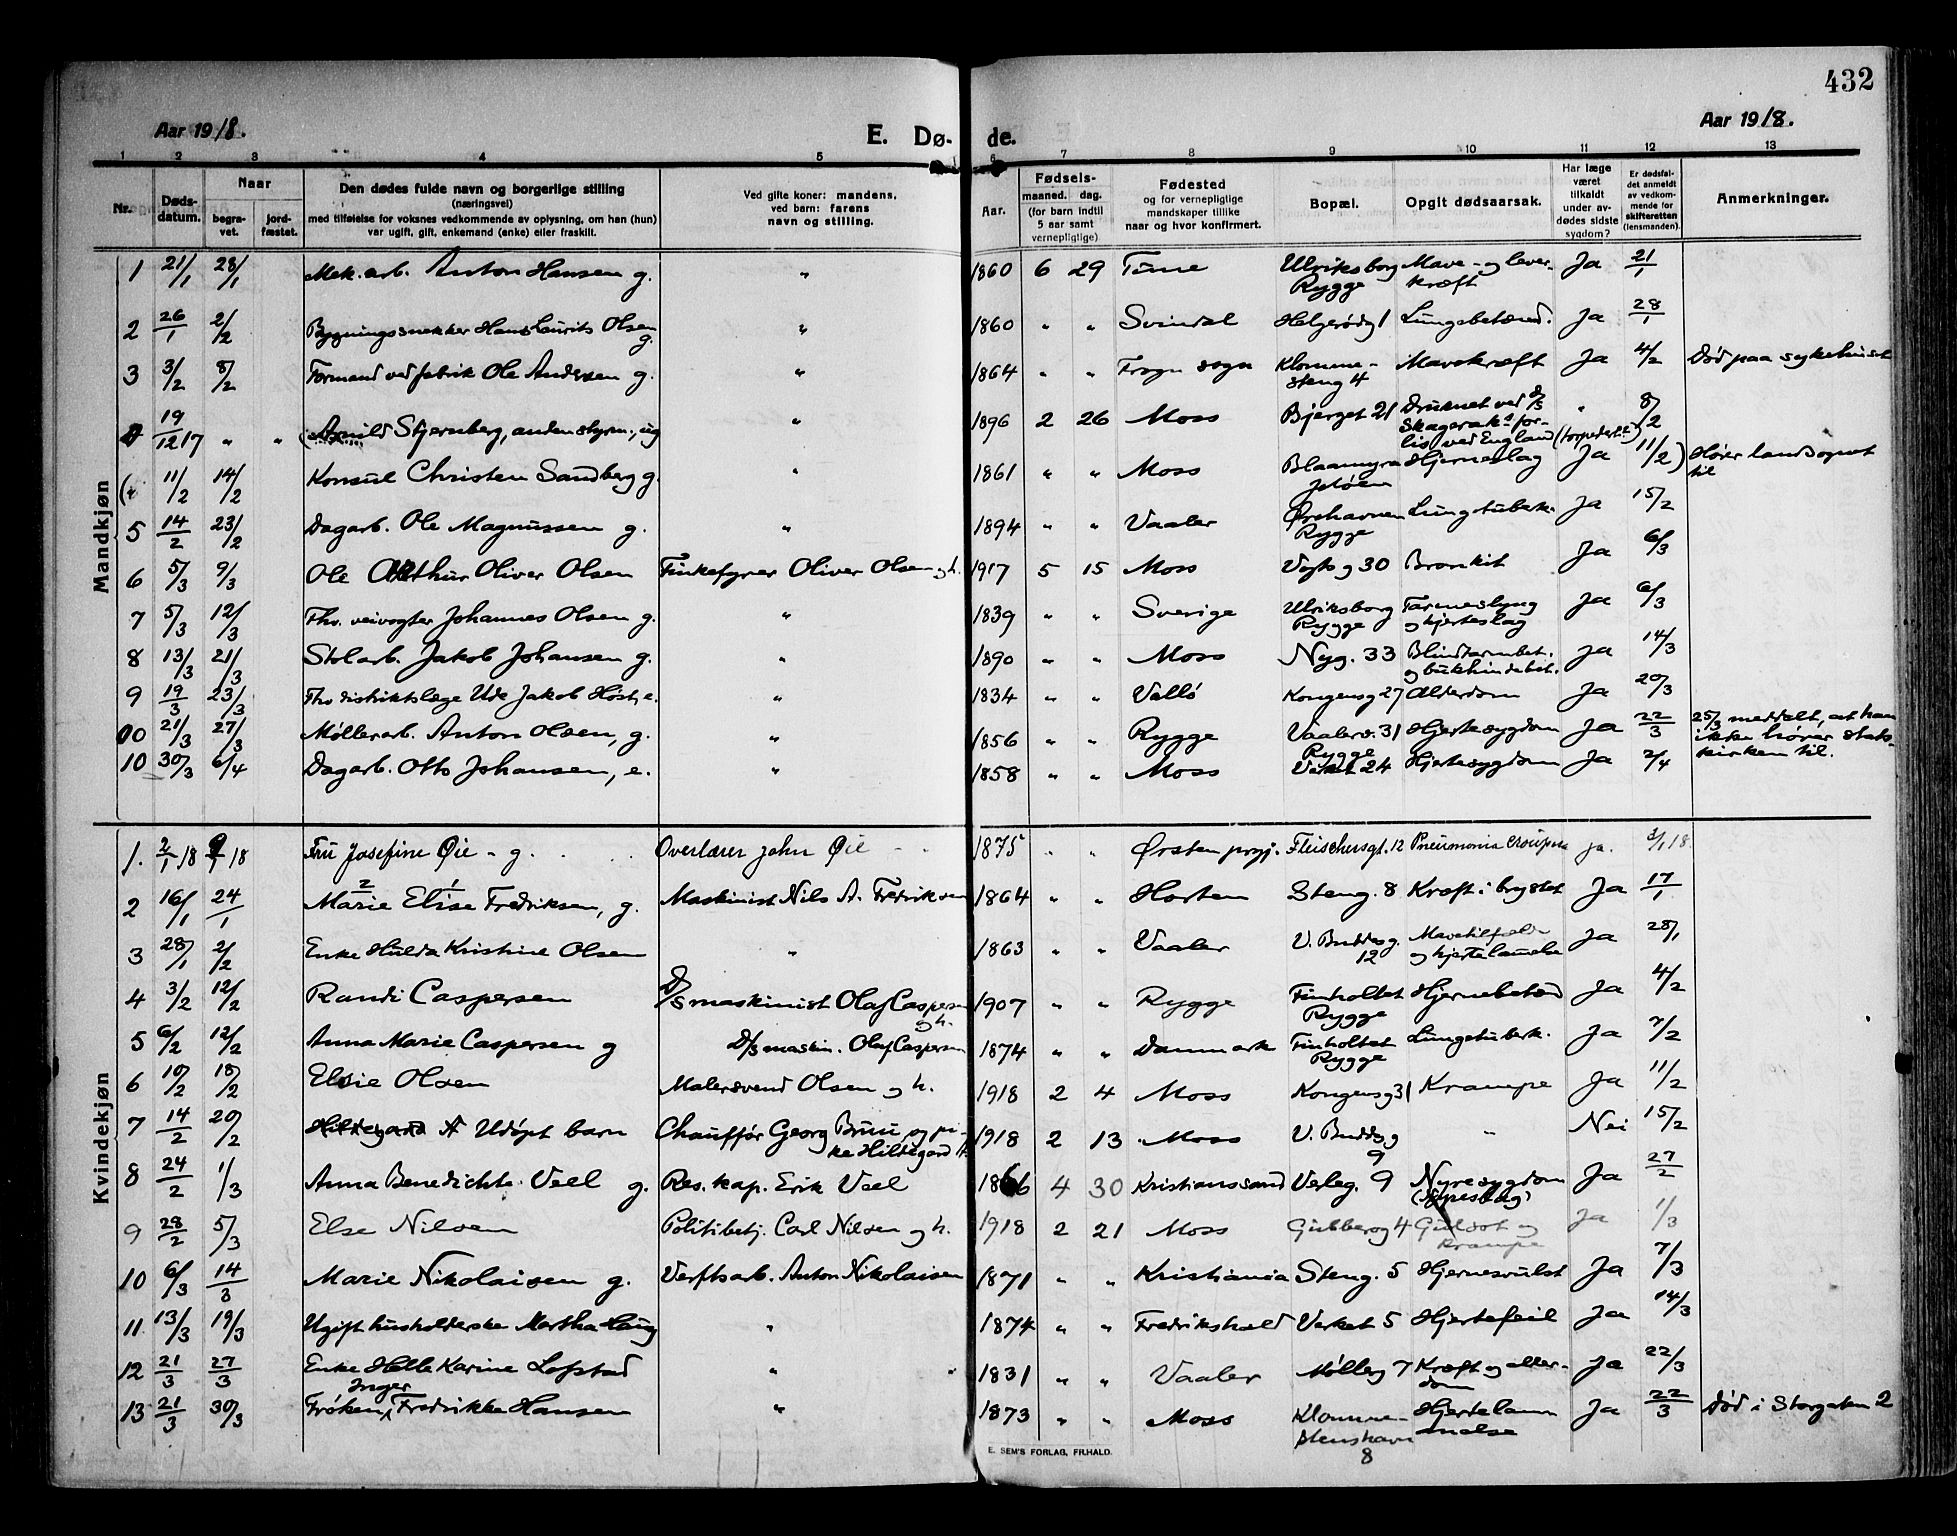 432
Aar 1918. E. Dø- de. Aar 1918.
1 2 3 4 5 6 7 8 9 10 11 12 13
Nr. Døds-datum. Naar begra-vet. jord-fæstet. Den dødes fulde navn og borgerlige stilling (næringsvei) med tilføielse for voksnes vedkommende av oplysning, om han (hun) var ugift, gift, enkemand (enke) eller fraskilt. Ved gifte koner: mandens, ved barn: farens navn og stilling. Aar. Fødsels- maaned. dag. (for barn indtil 5 aar samt vernepligtige) Fødested og for vernepligtige mandskaper tillike naar og hvor konfirmert. Bopæl. Opgit dødsaarsak. Har læge været tilkaldt under av-dødes sidste sygdom? Er dødsfal-det anmeldt av vedkom-mende for skifteretten (lensmanden). Anmerkninger.
Mandkjøn
1 21/1 28/1 Mek. arb. Anton Hansen g. " 1860 6 29 Tune Ulriksborg Rygge Mave- og lever-kræft Ja 21/1
2 26/1 2/2 Bygningssnekker Hans Laurits Olsen g. " 1860 " " Svindal Helgerødg 1 Lungebetænd. Ja 28/1
3 3/2 8/2 Formand ved fabrik Ole Andersen g. " 1864 " " Frogn sogn Klomme-steng 4 Mavekræft Ja 4/2 Død paa sykehuset
4 19/12 17 " " (Arnild Stjernberg, anden styrm., ug " 1896 2 26 Moss Bjerget 21 Druknet ved D/S Skageraks for-lis ved England (torpedert) " 8/2
(" 11/2 14/2 Konsul Christen Sandberg g. " 1861 " " Moss Blaamyra Jeløen Hjerneslag Ja 11/2) Hører landsognet til
5 14/2 23/2 Dagarb. Ole Magnussen g. " 1894 " " Vaaler Ørehavnen Rygge Lungetuberk. Ja 15/2
6 5/3 9/3 Ole Arthur Oliver Olsen Oliver Olsen og h. 1917 5 15 Moss Vogts g 30 Bronkit Ja 6/3
7 5/3 12/3 Fhv. veivogter Johannes Olsen g. " 1839 " " Sverige Ulriksborg Rygge Tarmeslyng og hjerteslag Ja 6/3
8 13/3 21/3 Stolarb. Jakob Johansen g. " 1890 " " Moss Nyg. 33 Blindtarmbet. og bukhindebet. Ja 14/3
9 19/3 23/3 Fhv distriktslæge Ude Jakob Høst, e. " 1834 " " Vallø Kongensg 27 Alderdom Ja 20/3
00 21/3 27/3 Møllerarb. Anton Olsen, g. " 1856 " " Rygge Vaalerv. 31 Rygge Hjertesygdom Ja 22/3 25/3 meddelt, at han ikke hører stats-kirken til.
10 30/3 6/4 Dagarb. Otto Johansen, e. " 1858 " " Moss Verket 24 Hjertesygdom Ja 2/4
Kvindekjøn
1. 2/1 18 9/1 18 Fru Josefine Øie - g. Overlærer John Øie 1875 " " Ørsten prgj. Fleischersgt. 12 Pneumonia crouposa ja. 3/1 18
2 16/1 24/1 Marie 2 Elise 1 Fredriksen, g. Maskinist Nils A. Fredriksen 1864 " " Horten Steng. 8 Kræft i brystet Ja 17/1
3 28/1 2/2 Enke Hulda Kristine Olsen " 1863 " " Vaaler V. Buddesg. 12 og hjertelammelse Ja 28/1
4 3/2 12/2 Randi Caspersen D/S maskinist Olaf Caspersen og h. 1907 " " Rygge Finholtet Rygge Hjernebetænd Ja 4/2
5 6/2 12/2 Anna Marie Caspersen g D/S maskin. Olaf Caspersen 1874 " " Danmark Finholtet Rygge Lungetuberk. Ja 7/2
6 10/2 18/2 Elsie Olsen Malersvend Olsen og h. 1918 2 4 Moss Kongensg 31 Krampe Ja 11/2
7 14/2 20/2 Hildegard A Udøpt barn Chauffør Georg Bruu og pi-ke Hildegard 1918 2 13 Moss V. Buddsg 9 " Nei 15/2
8 24/2 1/3 Anna Benedichte Veel g. Res. kap. Erik Veel 1866 4 30 Kristianssand Verleg. 9 Nyresygdom Ja 27/2
9 28/2 5/3 Else Nilsen Politibetj. Carl Nilsen og h. 1918 2 21 Moss Gubberog 4 Gulsot og krampe Ja 1/3
10 6/3 14/3 Marie Nikolaisen g. Verftsarb. Anton Nikolaisen 1871 " " Kristiania Steng. 5 Hjernesvulst Ja 7/3
11 13/3 19/3 Ugift husholderske Martha Haug " 1874 " " Fredrikshald Verket 5 Hjertefeil Ja 14/3
12 21/3 27/3 Enke Helle Karine Lofstad " 1831 " " Vaaler Mølleg 7 Kræft og alder-dom Ja 22/3
13 21/3 30/3 Frøken Inger Fredrikke Hansen " 1873 " " Moss Klomme-stenshavn 8 Hjertelam-melse Ja 22/3 Død i Storgaten 2
E. SEM'S FORLAG, FR.HALD.